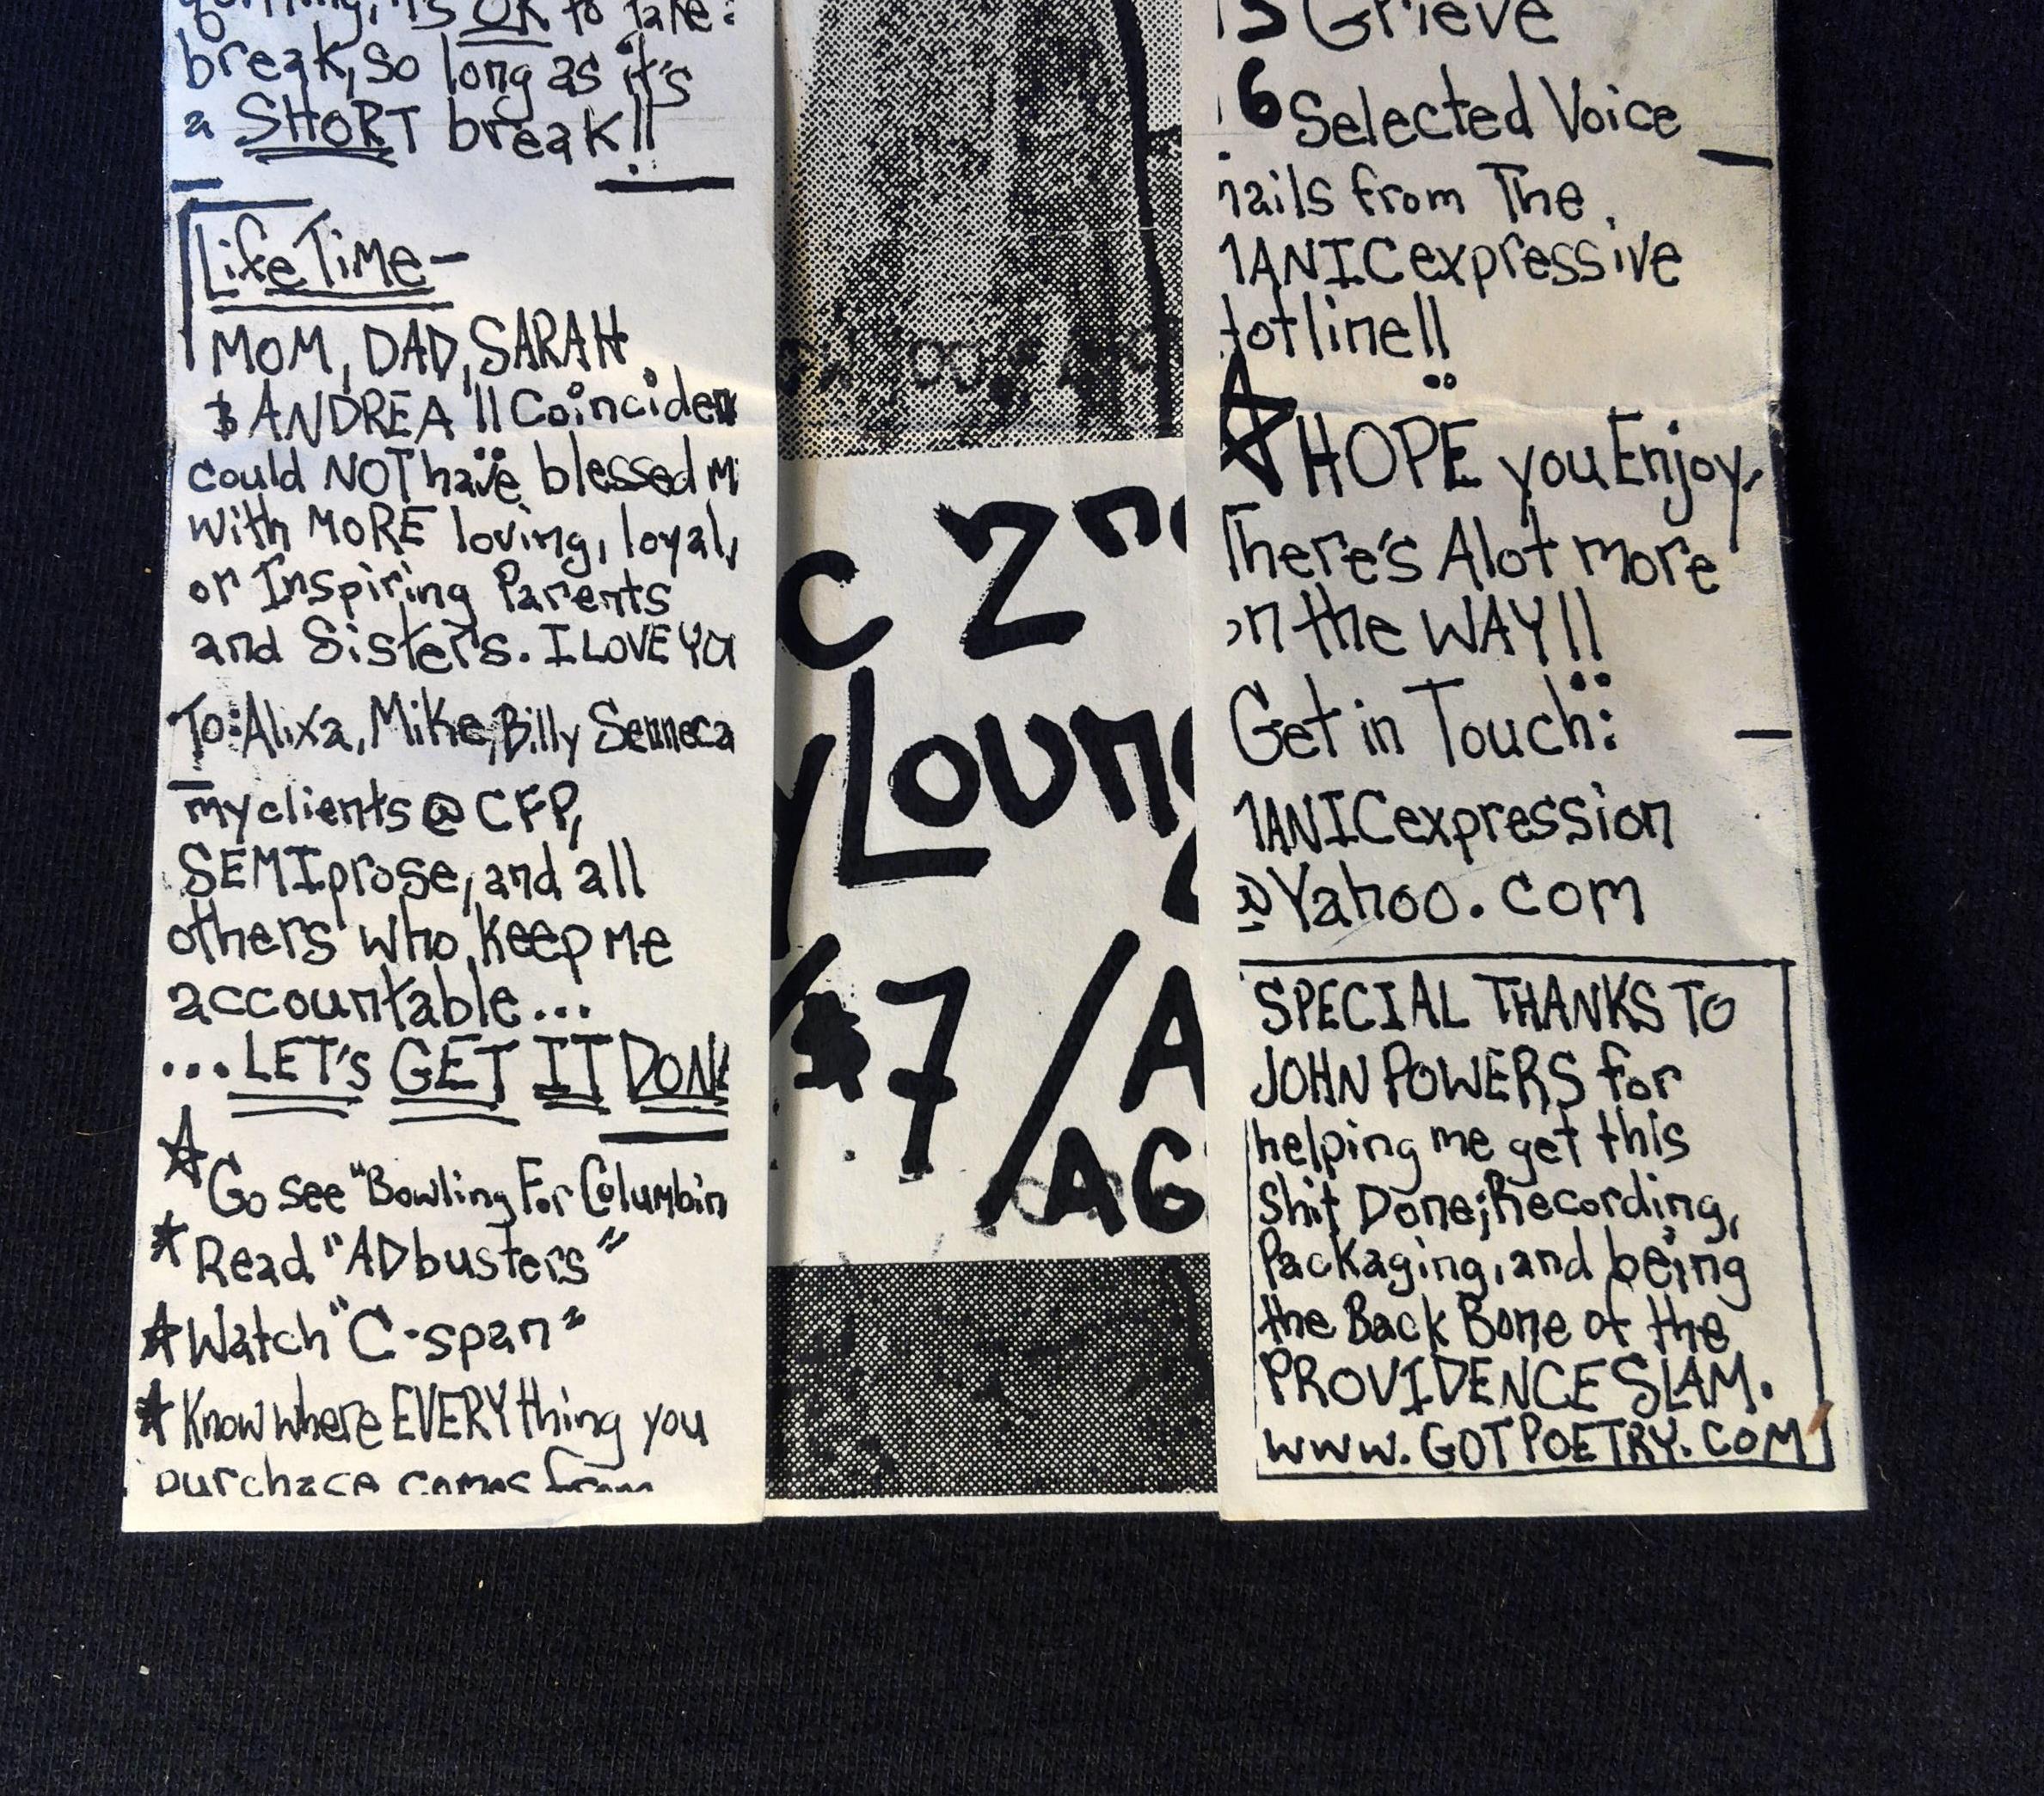 it's OK to take
break, so long as it's
a SHORT break!!
LifeTime-
MOM, DAD, SARAH
& ANDREA !! Coinciden
could NOT have blessed M
with MORE loving, loyal,
or Inspiring Parents
and Sisters. I LOVE YOU
To: Alixa, Mike, Billy Senneca
my clients @ CFP,
SEMIprose, and all
others who keep me
accountable...
...LET's GET IT DONE
Go see "Bowling For Columbin
Read "ADbusters"
Watch "C-span"
Know where EVERYthing you
purchase comes from
c 2nd
yLoung
$7/A
AG
15 Grieve
16 Selected Voice
nails from The
1ANICexpressive
Hotline!!
HOPE you Enjoy,
There's Alot more
on the WAY!!
Get in Touch:
1ANICexpression
@Yahoo.com
SPECIAL THANKS TO
JOHN POWERS for
helping me get this
shit Done; Recording,
Packaging, and being
the Back Bone of the
PROVIDENCE SLAM.
www.GOTPOETRY.COM